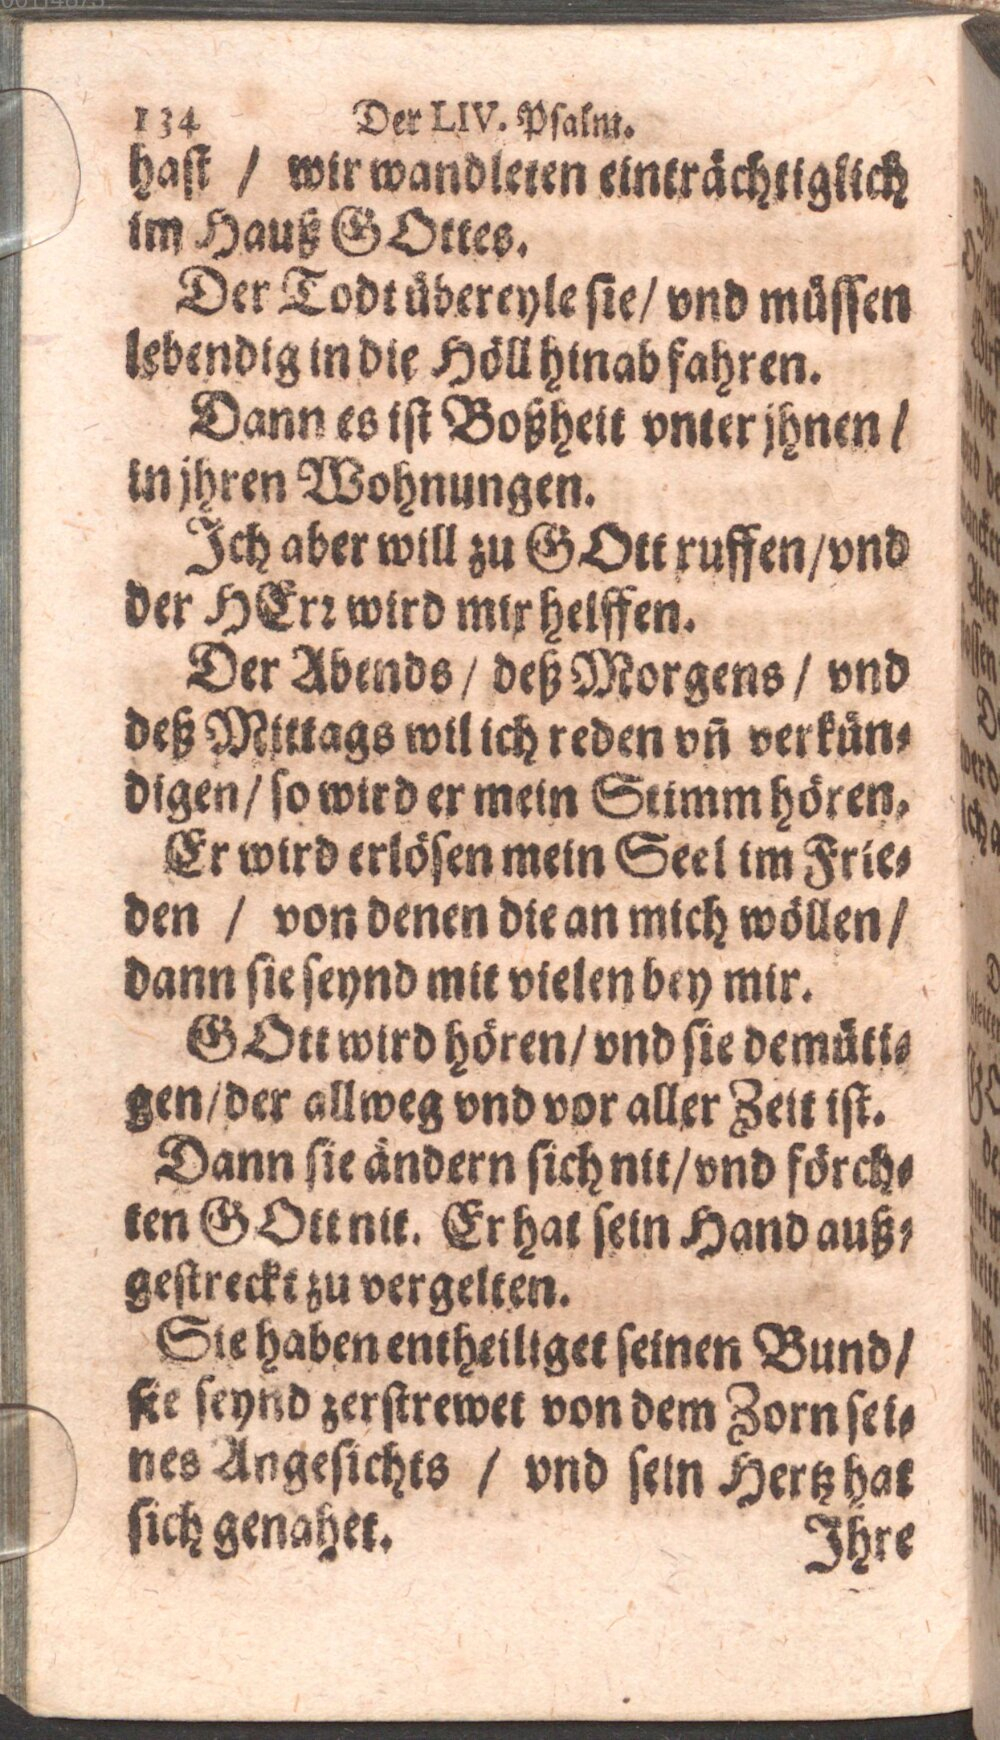 134 Der LIV. Psalm.
hast / wir wandleten einträchtiglich
im Hauß GOttes.
Der Todt übereyle sie/ vnd müssen
lebendig in die Höll hinab fahren.
Dann es ist Boßheit vnter jhnen/
in jhren Wohnungen.
Ich aber will zu GOtt ruffen/vnd
der HErr wird mir helffen.
Der Abends/ deß Morgens/ vnd
deß Mittags wil ich reden vñ verkün-
digen/ so wird er mein Stimm hören.
Er wird erlösen mein Seel im Frie-
den / von denen die an mich wöllen/
dann sie seynd mit vielen bey mir.
GOtt wird hören/ vnd sie demüti-
gen/der allweg vnd vor aller Zeit ist.
Dann sie ändern sich nit/vnd förch-
ten GOtt nit. Er hat sein Hand auß-
gestreckt zu vergelten.
Sie haben entheiliget seinen Bund/
sie seynd zerstrewet von dem Zorn sei-
nes Angesichts / vnd sein Hertz hat
sich genahet.
Ihre